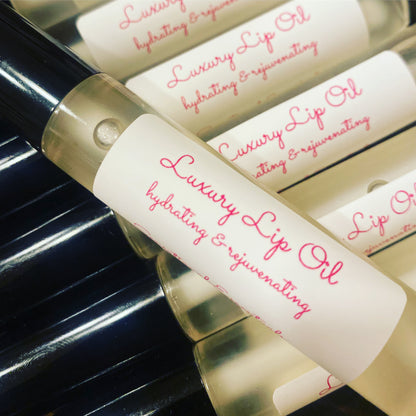 Luxury Lip Oil
hydrating & rejuvenating
Luxury Lip Oil
hydrating & rejuvenating
Luxury Lip Oil
hydrating & rejuvenating
Lip Oil
rejuvenating
Luxury Lip Oil
hydrating & rejuvenating